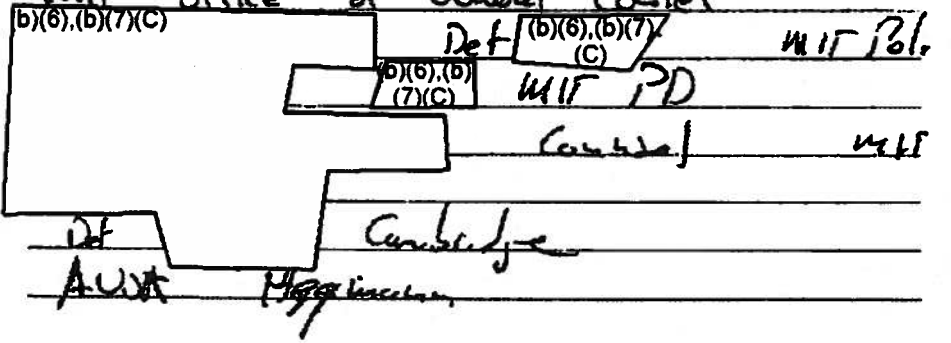 Office of General Counsel
(b)(6),(b)(7)(C) Det (b)(6),(b)(7)(C) MIT Pol.
(b)(6),(b)(7)(C) MIT PD
Counsel MIT
Det Cambridge
AUSA